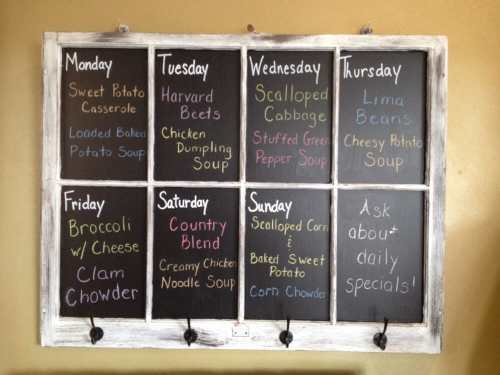 Monday
Sweet Potato
Casserole
Loaded Baked
Potato Soup
Tuesday
Harvard
Beets
Chicken
Dumpling
Soup
Wednesday
Scalloped
Cabbage
Stuffed Green
Pepper Soup
Thursday
Lima
Beans
Cheesy Potato
Soup
Friday
Broccoli
w/ Cheese
Clam
Chowder
Saturday
Country
Blend
Creamy Chicken
Noodle Soup
Sunday
Scalloped Corn
&
Baked Sweet
Potato
Corn Chowder
Ask
about
daily
specials!